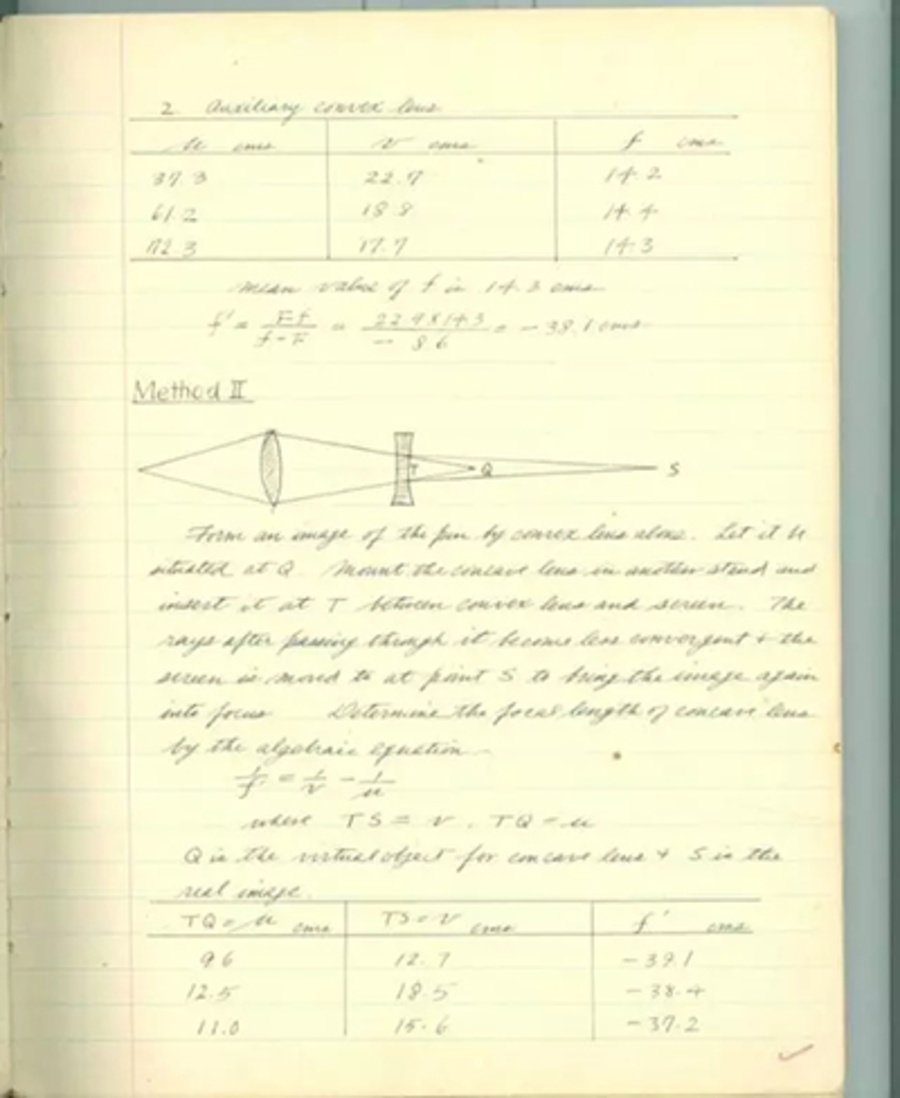 2 Auxiliary convex lens
u cms v cms f cms
37.3 22.7 14.2
61.2 18.8 14.4
72.3 17.7 14.3
mean value of f is 14.3 cms
f' = Ff / f-F = 22.9 x 14.3 / - 8.6 = - 38.1 cms
Method II
T Q S
Form an image of the pin by convex lens alone. Let it be
situated at Q. Mount the concave lens in another stand and
insert it at T between convex lens and screen. The
rays after passing through it become less convergent + the
screen is moved to at point S to bring the image again
into focus Determine the focal length of concave lens
by the algebraic equation -
1/f = 1/v - 1/u
where TS = v, TQ = u
Q is the virtual object for concave lens + S is the
real image.
TQ = u cms TS = v cms f' cms
9.6 12.7 -39.1
12.5 18.5 -38.4
11.0 15.6 -37.2